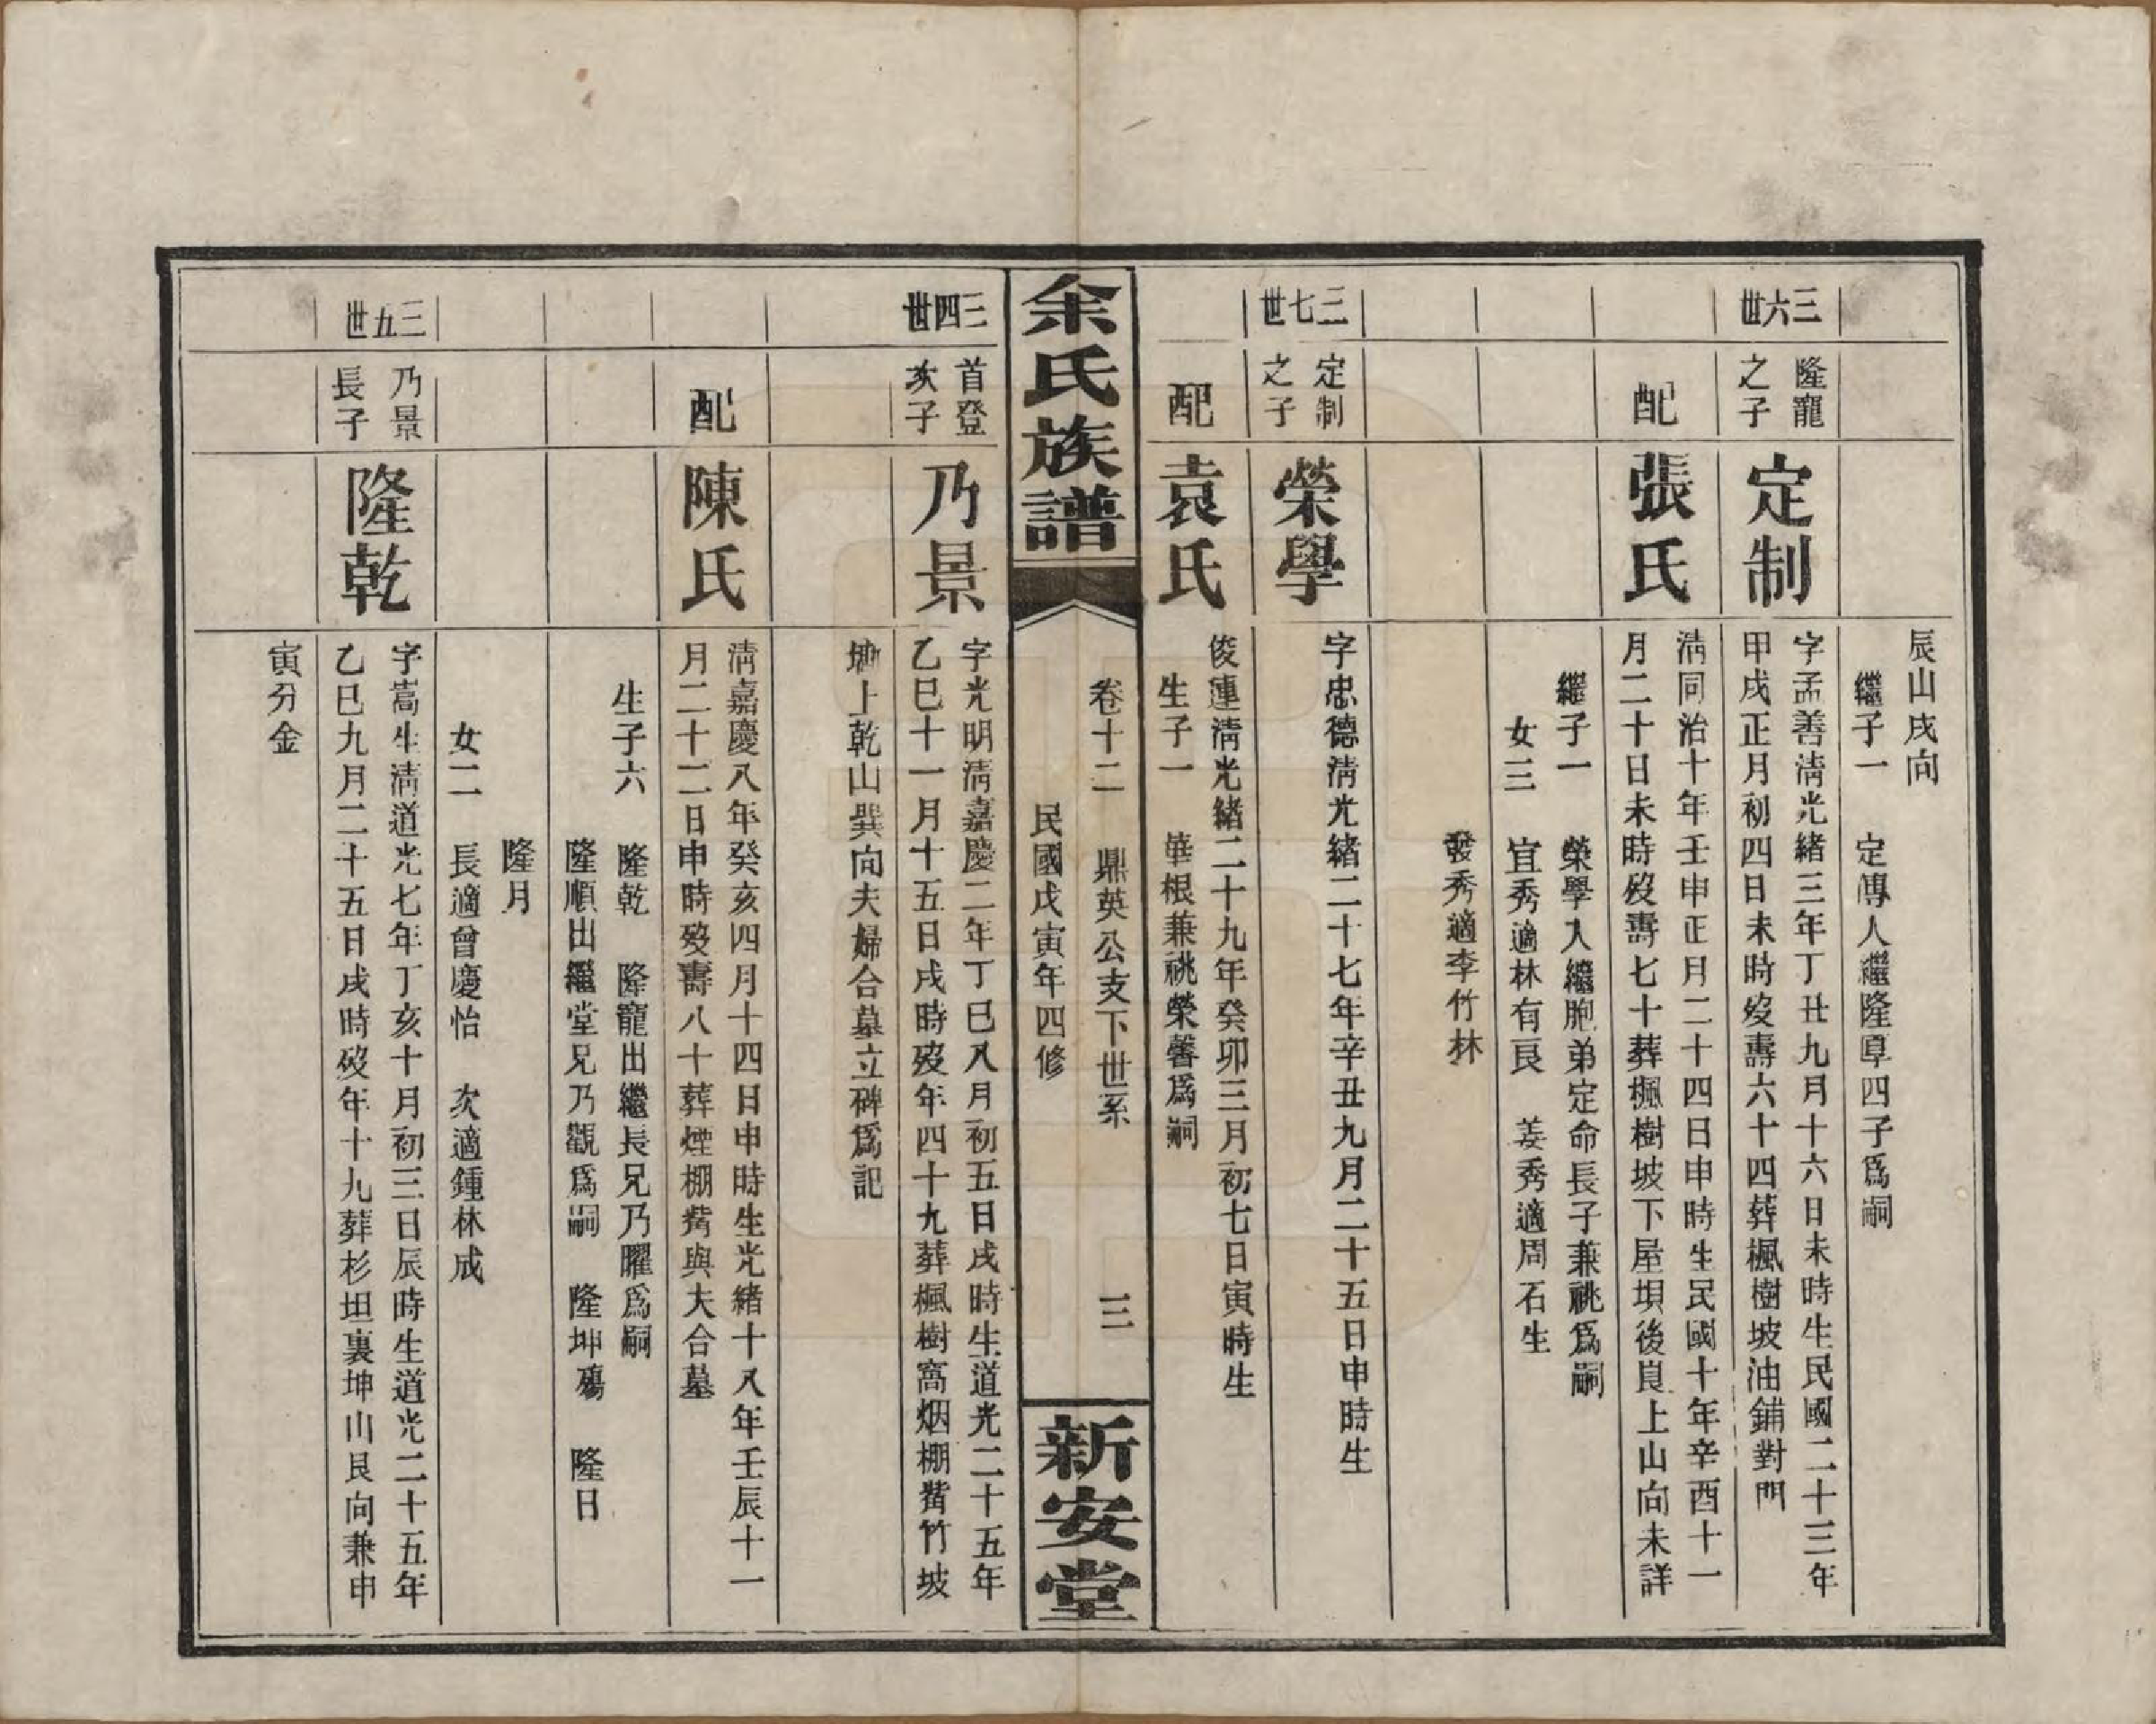 辰山戌向
繼子一　定傳人繼隆厚四子爲嗣
三六世
隆寵
之子
定制
字孟善淸光緒三年丁丑九月十六日未時生民國二十三年
甲戌正月初四日未時歿壽六十四葬楓樹坡油鋪對門
配
張氏
淸同治十年壬申正月二十四日申時生民國十年辛酉十一
月二十日未時歿壽七十葬楓樹坡下屋垻後艮上山向未詳
繼子一　榮學入繼胞弟定命長子兼祧爲嗣
女三　宜秀適林有良　姜秀適周石生
發秀適李竹林
三七世
定制
之子
榮學
字忠德淸光緒二十七年辛丑九月二十五日申時生
配
袁氏
俊連淸光緒二十九年癸卯三月初七日寅時生
生子一　華根兼祧榮馨爲嗣
余氏族譜
卷十二　鼎英公支下世系　三
民國戊寅年四修
新安堂
三四世
首登
次子
乃景
字光明淸嘉慶二年丁巳八月初五日戌時生道光二十五年
乙巳十一月十五日戌時歿年四十九葬楓樹窩烟棚背竹坡
塝上乾山巽向夫婦合墓立碑爲記
配
陳氏
淸嘉慶八年癸亥四月十四日申時生光緒十八年壬辰十一
月二十二日申時歿壽八十葬煙棚背與夫合墓
生子六　隆乾　隆寵出繼長兄乃曜爲嗣
隆順出繼堂兄乃觀爲嗣　隆坤殤　隆日
隆月
女二　長適曾慶怡　次適鍾林成
三五世
乃景
長子
隆乾
字嵩生淸道光七年丁亥十月初三日辰時生道光二十五年
乙巳九月二十五日戌時歿年十九葬杉坦裏坤山艮向兼申
寅分金